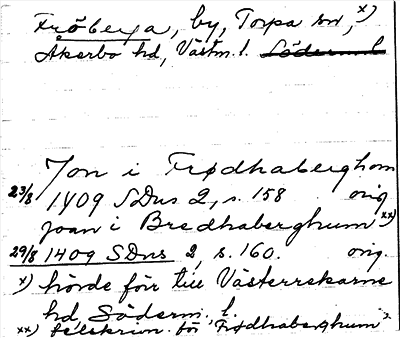 Fröberga, by, Torpa sn, x)
Åkerbo hd, Västm. l. Söderm. l
Jon i Frødhaberghom
23/8 1409 SDns 2, s. 158 orig
Joan i Bredhaberghum xx)
29/8 1409 SDns 2, s. 160. orig.
x) hörde förr till Västerrekarne
hd, Söderm. l.
xx) felskrivn. för "Frødhaberghum"